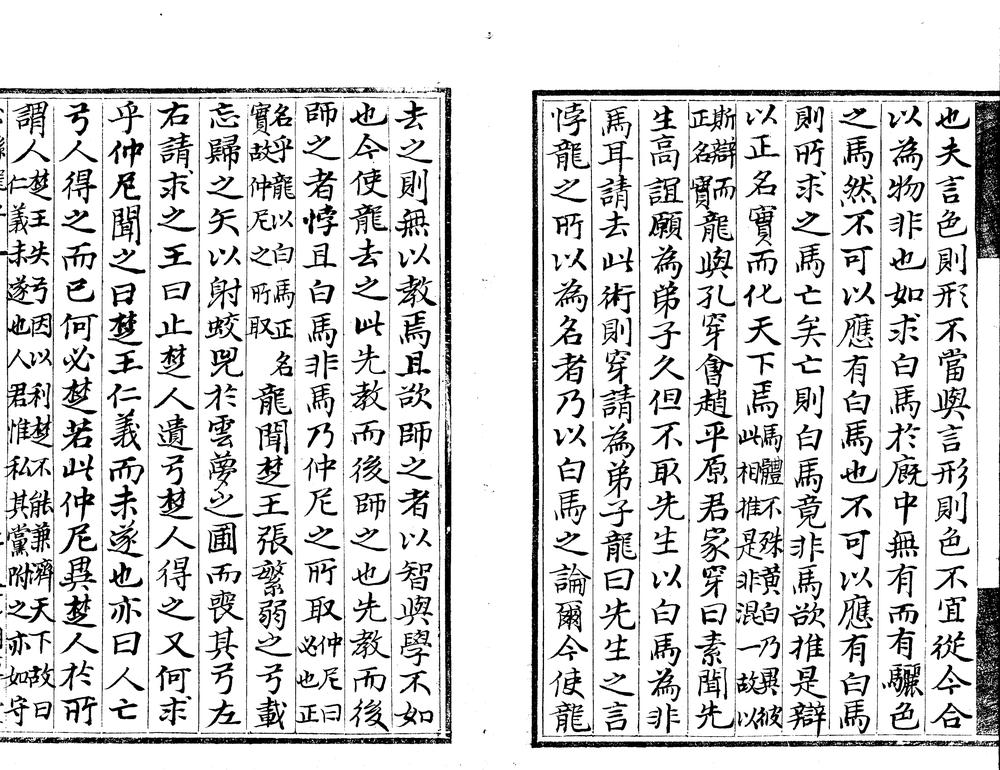 也夫言色則形不當與言形則色不宜從今合
以為物非也如求白馬於廄中無有而有驪色
之馬然不可以應有白馬也不可以應有白馬
則所求之馬亡矣亡則白馬竟非馬欲推是辯
以正名實而化天下焉馬體不殊黃白乃異彼此相推是非混一故以
斯辯而正名實龍與孔穿會趙平原君家穿曰素聞先
生高誼願為弟子久但不取先生以白馬為非
馬耳請去此術則穿請為弟子龍曰先生之言
悖龍之所以為名者乃以白馬之論爾今使龍
去之則無以教焉且欲師之者以智與學不如
也今使龍去之此先教而後師之也先教而後
師之者悖且白馬非馬乃仲尼之所取仲尼曰必也正
名乎龍以白馬正名實故仲尼之所取龍聞楚王張繁弱之弓載
忘歸之矢以射蛟兕於雲夢之圃而喪其弓左
右請求之王曰止楚人遺弓楚人得之又何求
乎仲尼聞之曰楚王仁義而未遂也亦曰人亡
弓人得之而已何必楚若此仲尼異楚人於所
謂人楚王失弓因以利楚不能兼濟天下故曰仁義未遂也人君惟私其黨附之亦如守